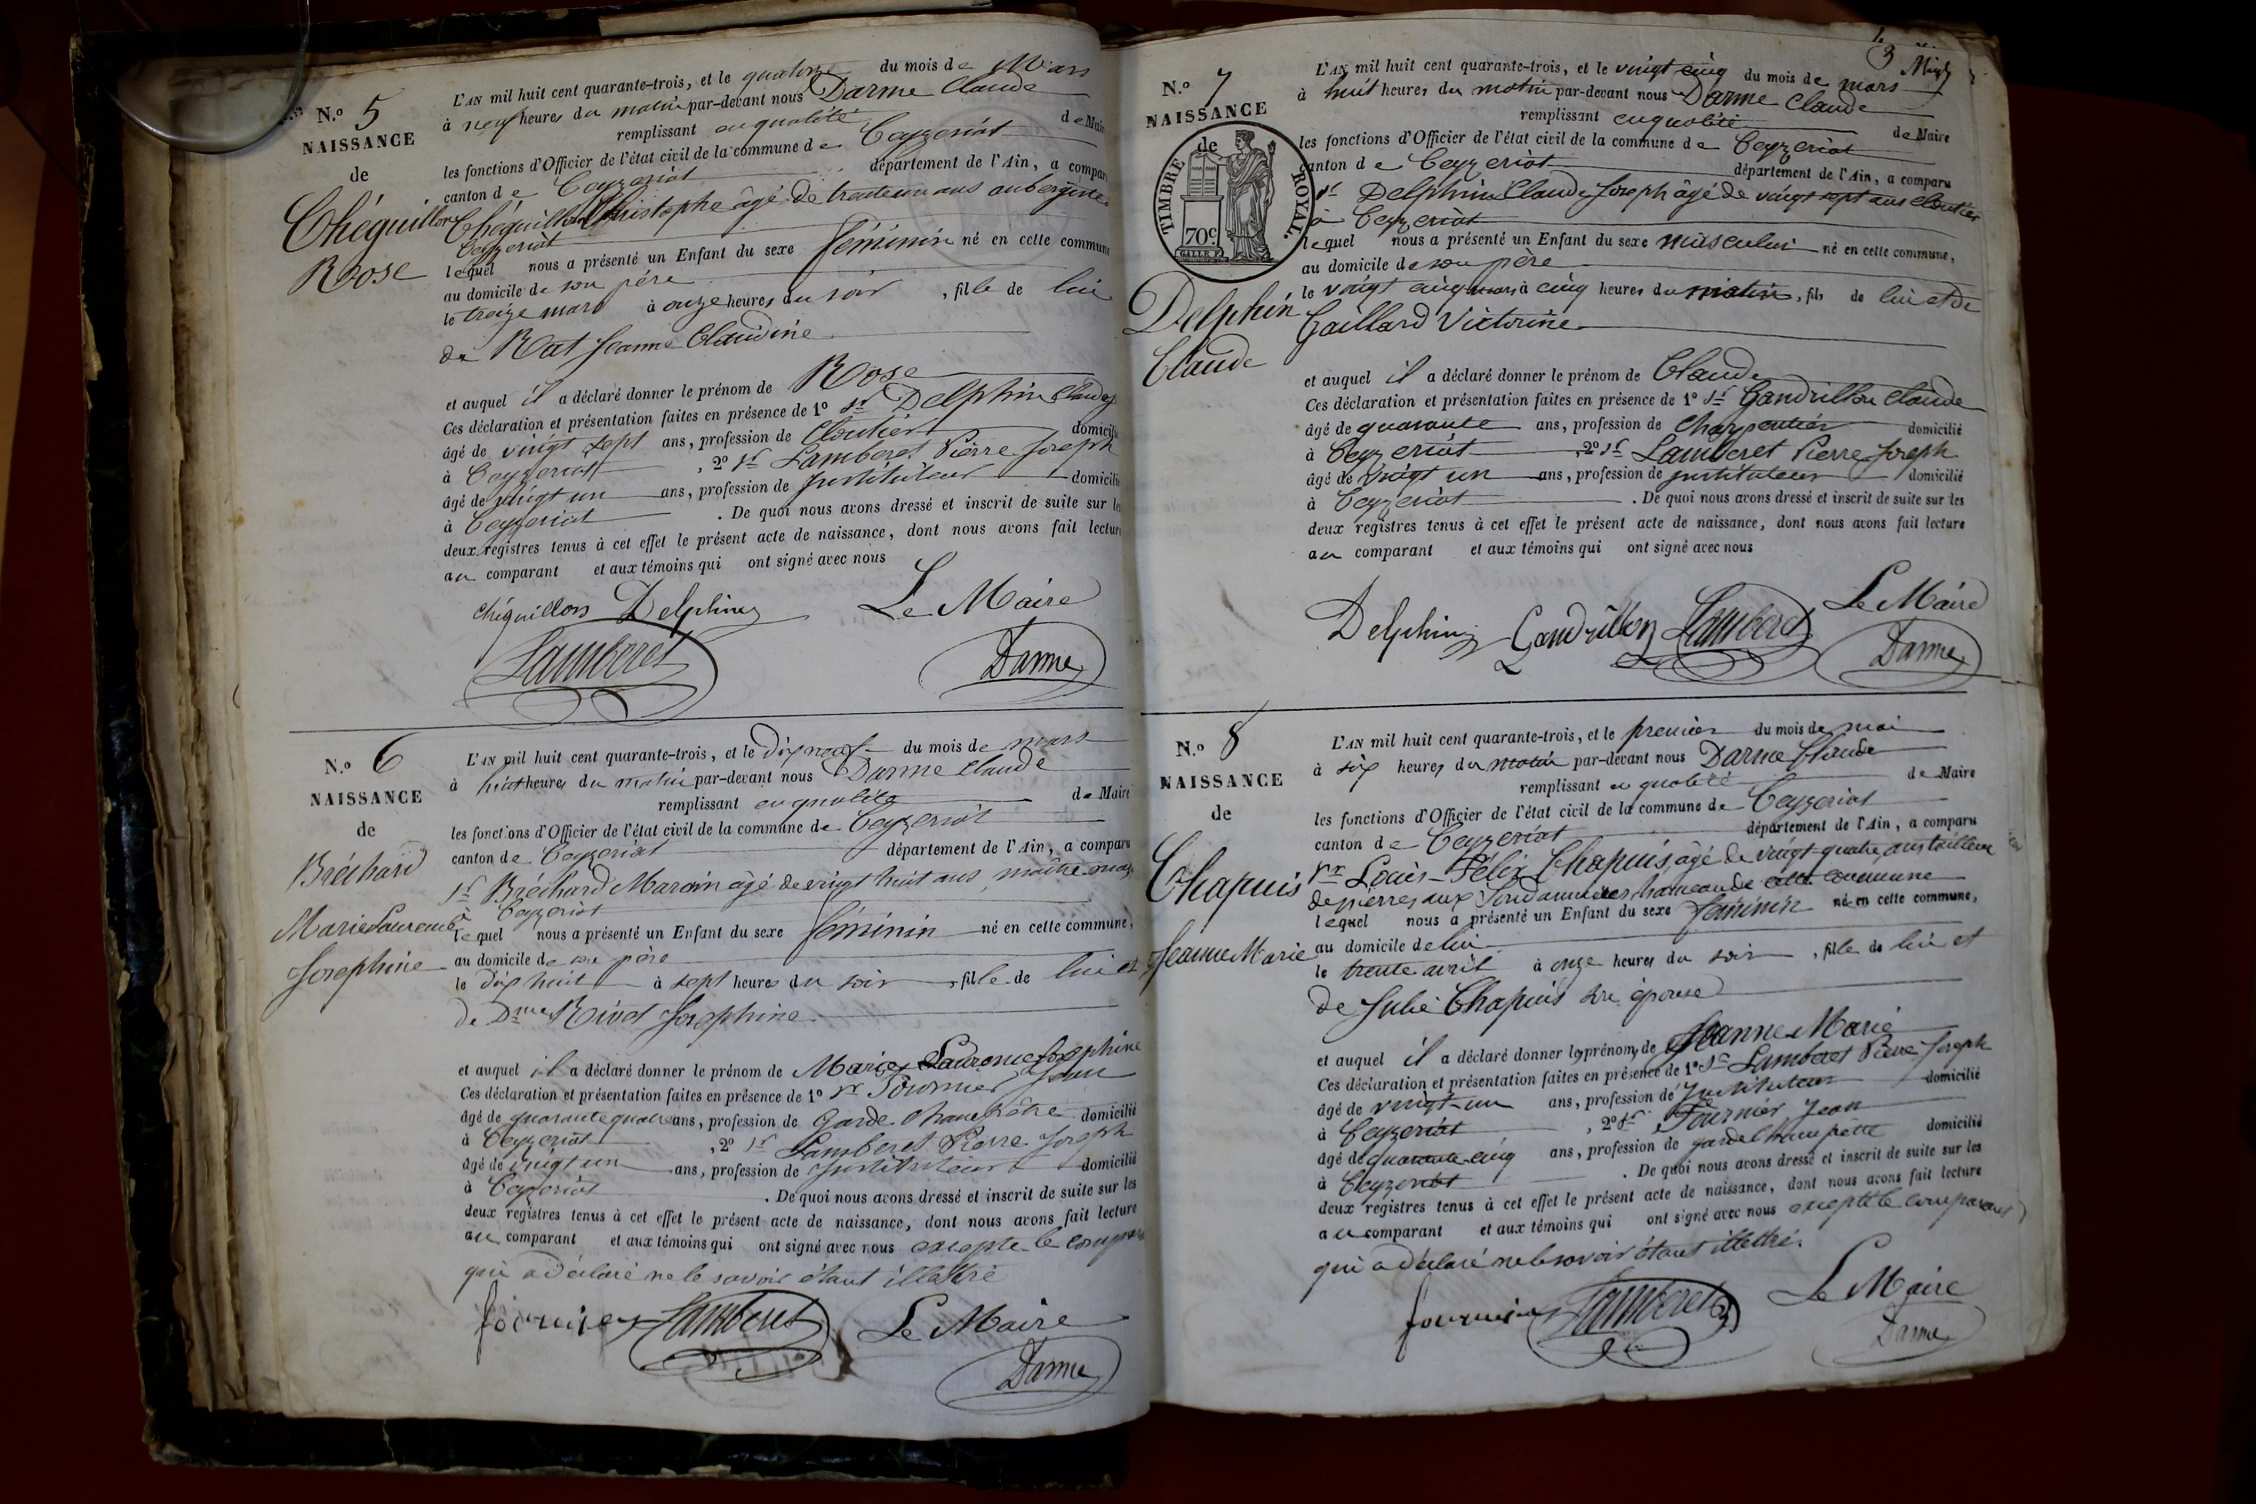 N.o 5
NAISSANCE
de
Chéguillon
Roose
L'AN mil huit cent quarante-trois, et le quatorze du mois de Mars
à neuf heures du matin par-devant nous Darme Claude
remplissant en qualité de Maire
les fonctions d'Officier de l'état civil de la commune de Ceyzeriat
canton de Ceyzeriat département de l'Ain, a comparu
Chéguillon Christophe âgé de trente un ans aubergiste
Ceyzeriat
lequel nous a présenté un Enfant du sexe féminin né en cette commune
au domicile de son père
le treize mars à onze heures du soir, fille de lui
de Rat Jeanne Claudine
et auquel il a déclaré donner le prénom de Rose
Ces déclaration et présentation faites en présence de 1o Sr Delphin Claude
âgé de vingt sept ans, profession de Cloutier domicilié
à Ceyzeriat, 2o Sr Lamberet Pierre Joseph
âgé de vingt un ans, profession de Instituteur domicilié
à Ceyzeriat. De quoi nous avons dressé et inscrit de suite sur les
deux registres tenus à cet effet le présent acte de naissance, dont nous avons fait lecture
au comparant et aux témoins qui ont signé avec nous
Chéguillon Delphin Le Maire
Lamberet Darme
N.o 6
NAISSANCE
de
Bréchard
Marie Laurence
Josephine
L'AN mil huit cent quarante-trois, et le dix neuf du mois de mars
à huit heures du matin par-devant nous Darme Claude
remplissant en qualité de Maire
les fonctions d'Officier de l'état civil de la commune de Ceyzeriat
canton de Ceyzeriat département de l'Ain, a comparu
Sr Bréchard Marcin âgé de vingt huit ans, maître maçon
à Ceyzeriat
lequel nous a présenté un Enfant du sexe féminin né en cette commune,
au domicile de son père
le dix huit à sept heures du soir, fille de lui et
de Dme Rivet Josephine
et auquel il a déclaré donner le prénom de Marie Laurence Josephine
Ces déclaration et présentation faites en présence de 1o Sr Fournier Jean
âgé de quarante quatre ans, profession de Garde Champêtre domicilié
à Ceyzeriat, 2o Sr Lamberet Pierre Joseph
âgé de vingt un ans, profession de Instituteur domicilié
à Ceyzeriat. De quoi nous avons dressé et inscrit de suite sur les
deux registres tenus à cet effet le présent acte de naissance, dont nous avons fait lecture
au comparant et aux témoins qui ont signé avec nous excepte le comparant
qui a déclaré ne le savoir étant illettré
fournier Lamberet Le Maire
Darme
3
N.o 7
NAISSANCE
de
TIMBRE ROYAL.
70c
Delphin
Claude
L'AN mil huit cent quarante-trois, et le vingt cinq du mois de mars
à huit heures du matin par-devant nous Darme Claude
remplissant en qualité de Maire
les fonctions d'Officier de l'état civil de la commune de Ceyzeriat
canton de Ceyzeriat département de l'Ain, a comparu
Sr Delphin Claude Joseph âgé de vingt sept ans cloutier
à Ceyzeriat
lequel nous a présenté un Enfant du sexe masculin né en cette commune,
au domicile de son père
le vingt cinq mars à cinq heures du matin, fils de lui et de
Gaillard Victorine
et auquel il a déclaré donner le prénom de Claude
Ces déclaration et présentation faites en présence de 1o Sr Gandrillon Claude
âgé de quarante ans, profession de Charpentier domicilié
à Ceyzeriat, 2o Sr Lamberet Pierre Joseph
âgé de vingt un ans, profession de instituteur domicilié
à Ceyzeriat. De quoi nous avons dressé et inscrit de suite sur les
deux registres tenus à cet effet le présent acte de naissance, dont nous avons fait lecture
au comparant et aux témoins qui ont signé avec nous
Le Maire
Delphin Gandrillon Lamberet Darme
N.o 8
NAISSANCE
de
Chapuis
Jeanne Marie
L'AN mil huit cent quarante-trois, et le premier du mois de mai
à six heures du matin par-devant nous Darme Claude
remplissant en qualité de Maire
les fonctions d'Officier de l'état civil de la commune de Ceyzeriat
canton de Ceyzeriat département de l'Ain, a comparu
Sr Louis-Félix Chapuis, âgé de vingt-quatre ans tailleur
de pierres aux Soudannières hameau de cette commune
lequel nous a présenté un Enfant du sexe féminin né en cette commune,
au domicile de lui
le trente avril à onze heures du soir, fille de lui et
de Julie Chapuis son épouse
et auquel il a déclaré donner les prénoms de Jeanne Marie
Ces déclaration et présentation faites en présence de 1o Sr Lamberet Pierre Joseph
âgé de vingt-un ans, profession de Instituteur domicilié
à Ceyzeriat, 2o Sr Fournier Jean
âgé de quarante cinq ans, profession de garde champêtre domicilié
à Ceyzeriat. De quoi nous avons dressé et inscrit de suite sur les
deux registres tenus à cet effet le présent acte de naissance, dont nous avons fait lecture
au comparant et aux témoins qui ont signé avec nous excepté le comparant
qui a déclaré ne le savoir étant illettré.
fournier Lamberet Le Maire
Darme